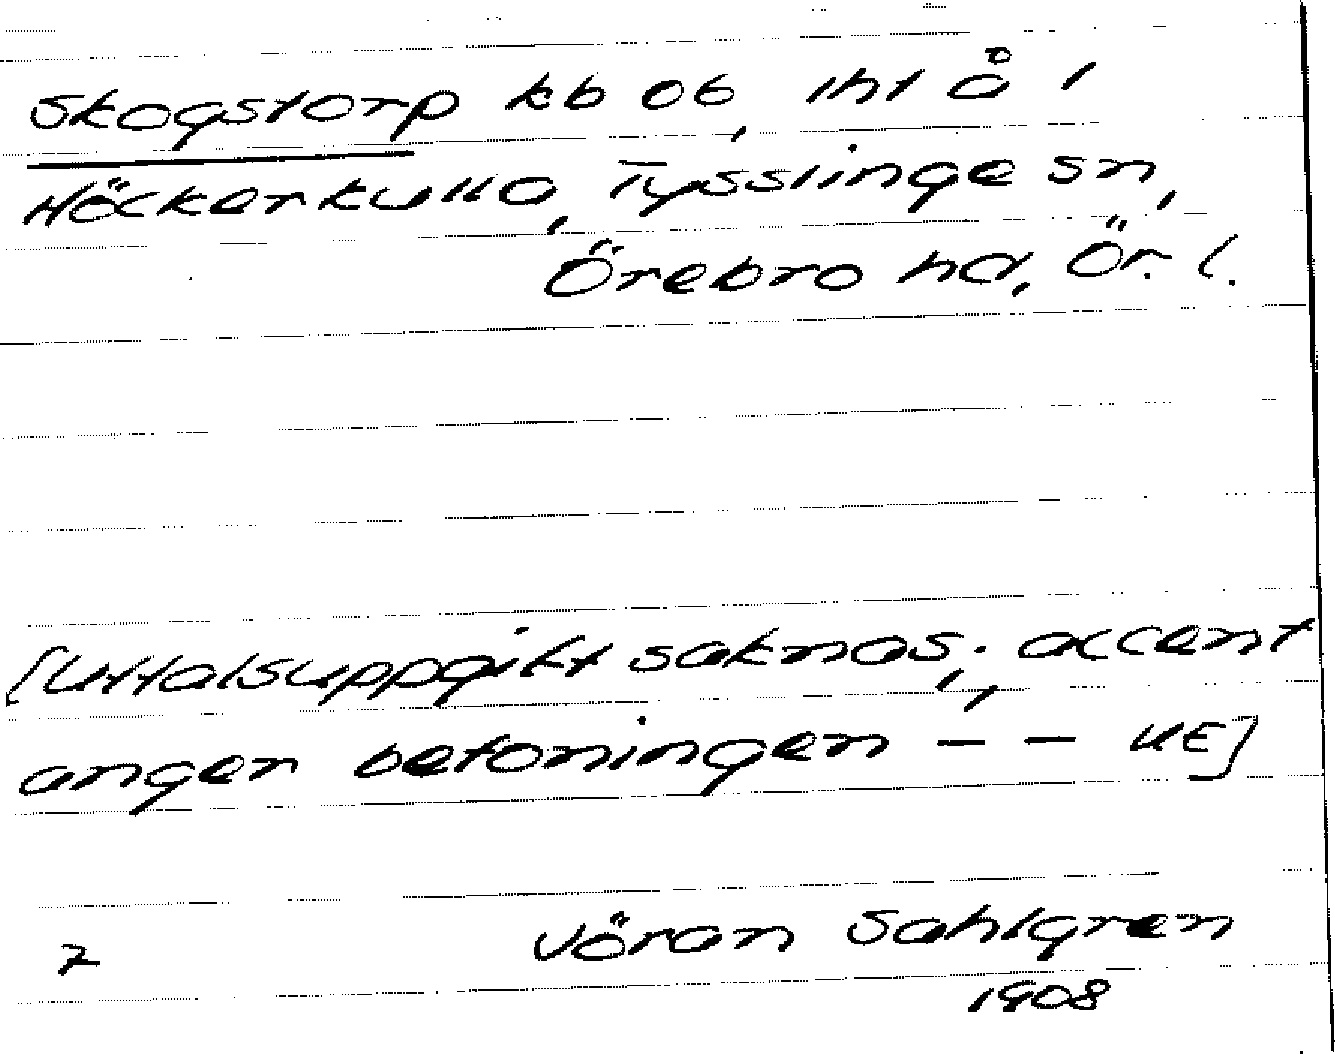 Skogstorp kb ob, iht å 1
Höckerkulla, Tysslinge sn,
Örebro hd, Ör. l.
[Uttalsuppgift saknas,; accent
anger betoningen – – UE]
7 Jöran Sahlgren
1908